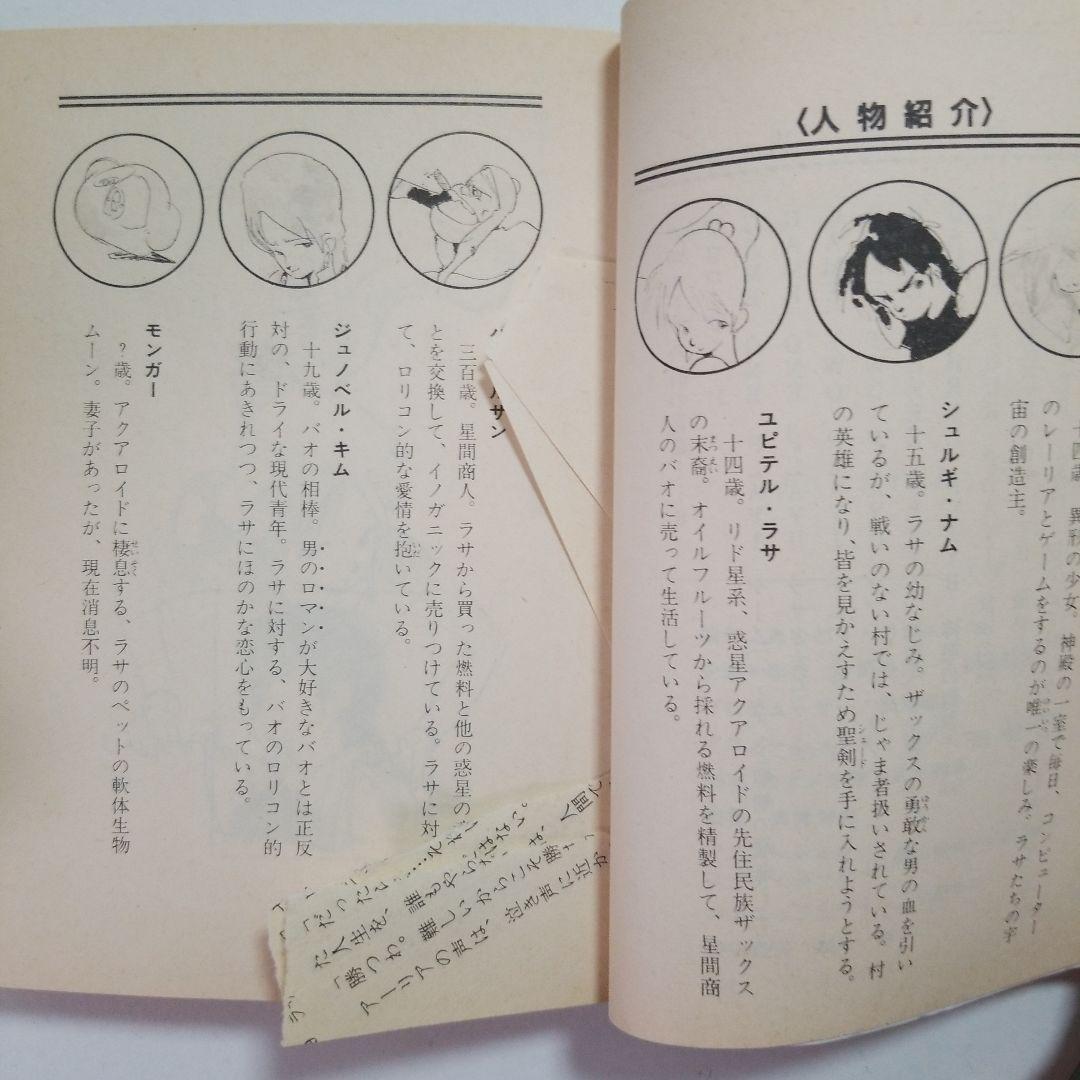 〈人物紹介〉
十四歳。異形の少女。神殿の一室で毎日、コンピューター
のレーリアとゲームをするのが唯一の楽しみ。ラサたちの宇
宙の創造主。
シュルギ・ナム
十五歳。ラサの幼なじみ。ザックスの勇敢な男の血を引い
ているが、戦いのない村では、じゃま者扱いされている。村
の英雄になり、皆を見かえすため聖剣を手に入れようとする。
ユピテル・ラサ
十四歳。リド星系、惑星アクアロイドの先住民族ザックス
の末裔。オイルフルーツから採れる燃料を精製して、星間商
人のバオに売って生活している。
サン
三百歳。星間商人。ラサから買った燃料と他の惑星の
とを交換して、イノガニックに売りつけている。ラサに対
て、ロリコン的な愛情を抱いている。
ジュノベル・キム
十九歳。バオの相棒。男のロマンが大好きなバオとは正反
対の、ドライな現代青年。ラサに対する、バオのロリコン的
行動にあきれつつ、ラサにほのかな恋心をもっている。
モンガー
?歳。アクアロイドに棲息する、ラサのペットの軟体生物
ムーン。妻子があったが、現在消息不明。
人間
だった……そ
た人生を、誰もやらだはない。
「勝つわ。難しいからこそ勝
アーリアの声は、泣き声に近か